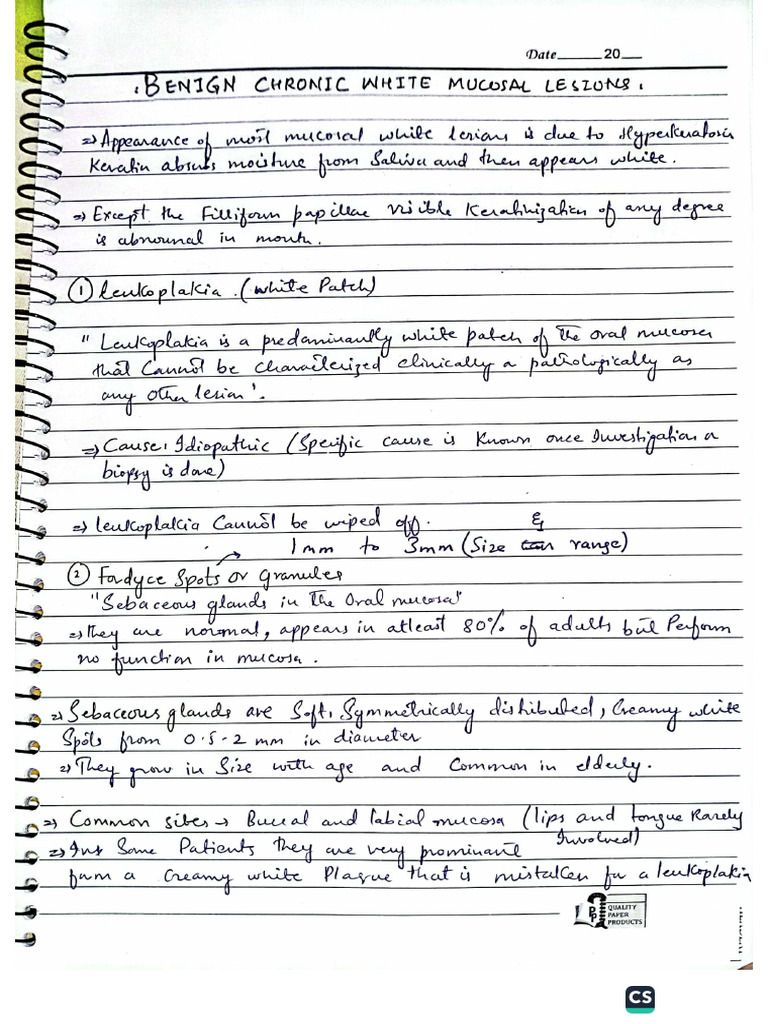 Date 20
. BENIGN CHRONIC WHITE MUCOSAL LESIONS .
=> Appearance of most mucosal white lesions is due to Hyperkeratosis
Keratin absurs moisture from Saliva and then appears white.
=> Except the Filliform papillae visible Keratinization of any degree
is abnormal in mouth.
① leukoplakia . (white Patch)
" Leukoplakia is a predominantly white patch of the oral mucosa
that Cannot be characterized clinically or pathologically as
any other lesion".
=> Cause: Idiopathic (Specific cause is Known once Investigation or
biopsy is done)
=> leukoplakia Cannot be wiped off. &
1mm to 3mm (Size range)
② Fordyce Spots or Granules
"Sebaceous glands in the Oral mucosa"
=> They are normal, appears in atleast 80% of adults but Perform
no function in mucosa.
=> Sebaceous glands are Soft, Symmetrically distributed, Creamy white
Spots from 0.5-2 mm in diameter
=> They grow in Size with age and Common in elderly.
=> Common sites → Buccal and labial mucosa (lips and tongue Rarely
Involved)
=> In Some Patients they are very prominant
form a Creamy white Plaque that is mistaken for a leukoplakia
QUALITY
PAPER
PRODUCTS
CS